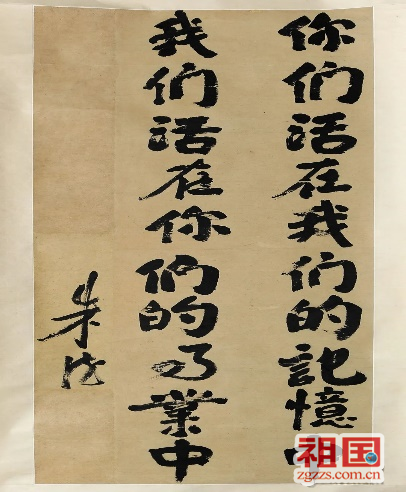 你们活在我们的記憶中
我们活在你们的事業中
朱德
祖国
zgzzs.com.cn